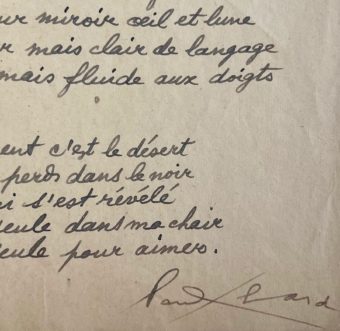 ur miroir œil et lune
r mais clair de langage
mais fluide aux doigts
ent c'est le désert
perds dans le noir
i s'est révélé
seule dans ma chair
seule pour aimer.
Paul Eluard